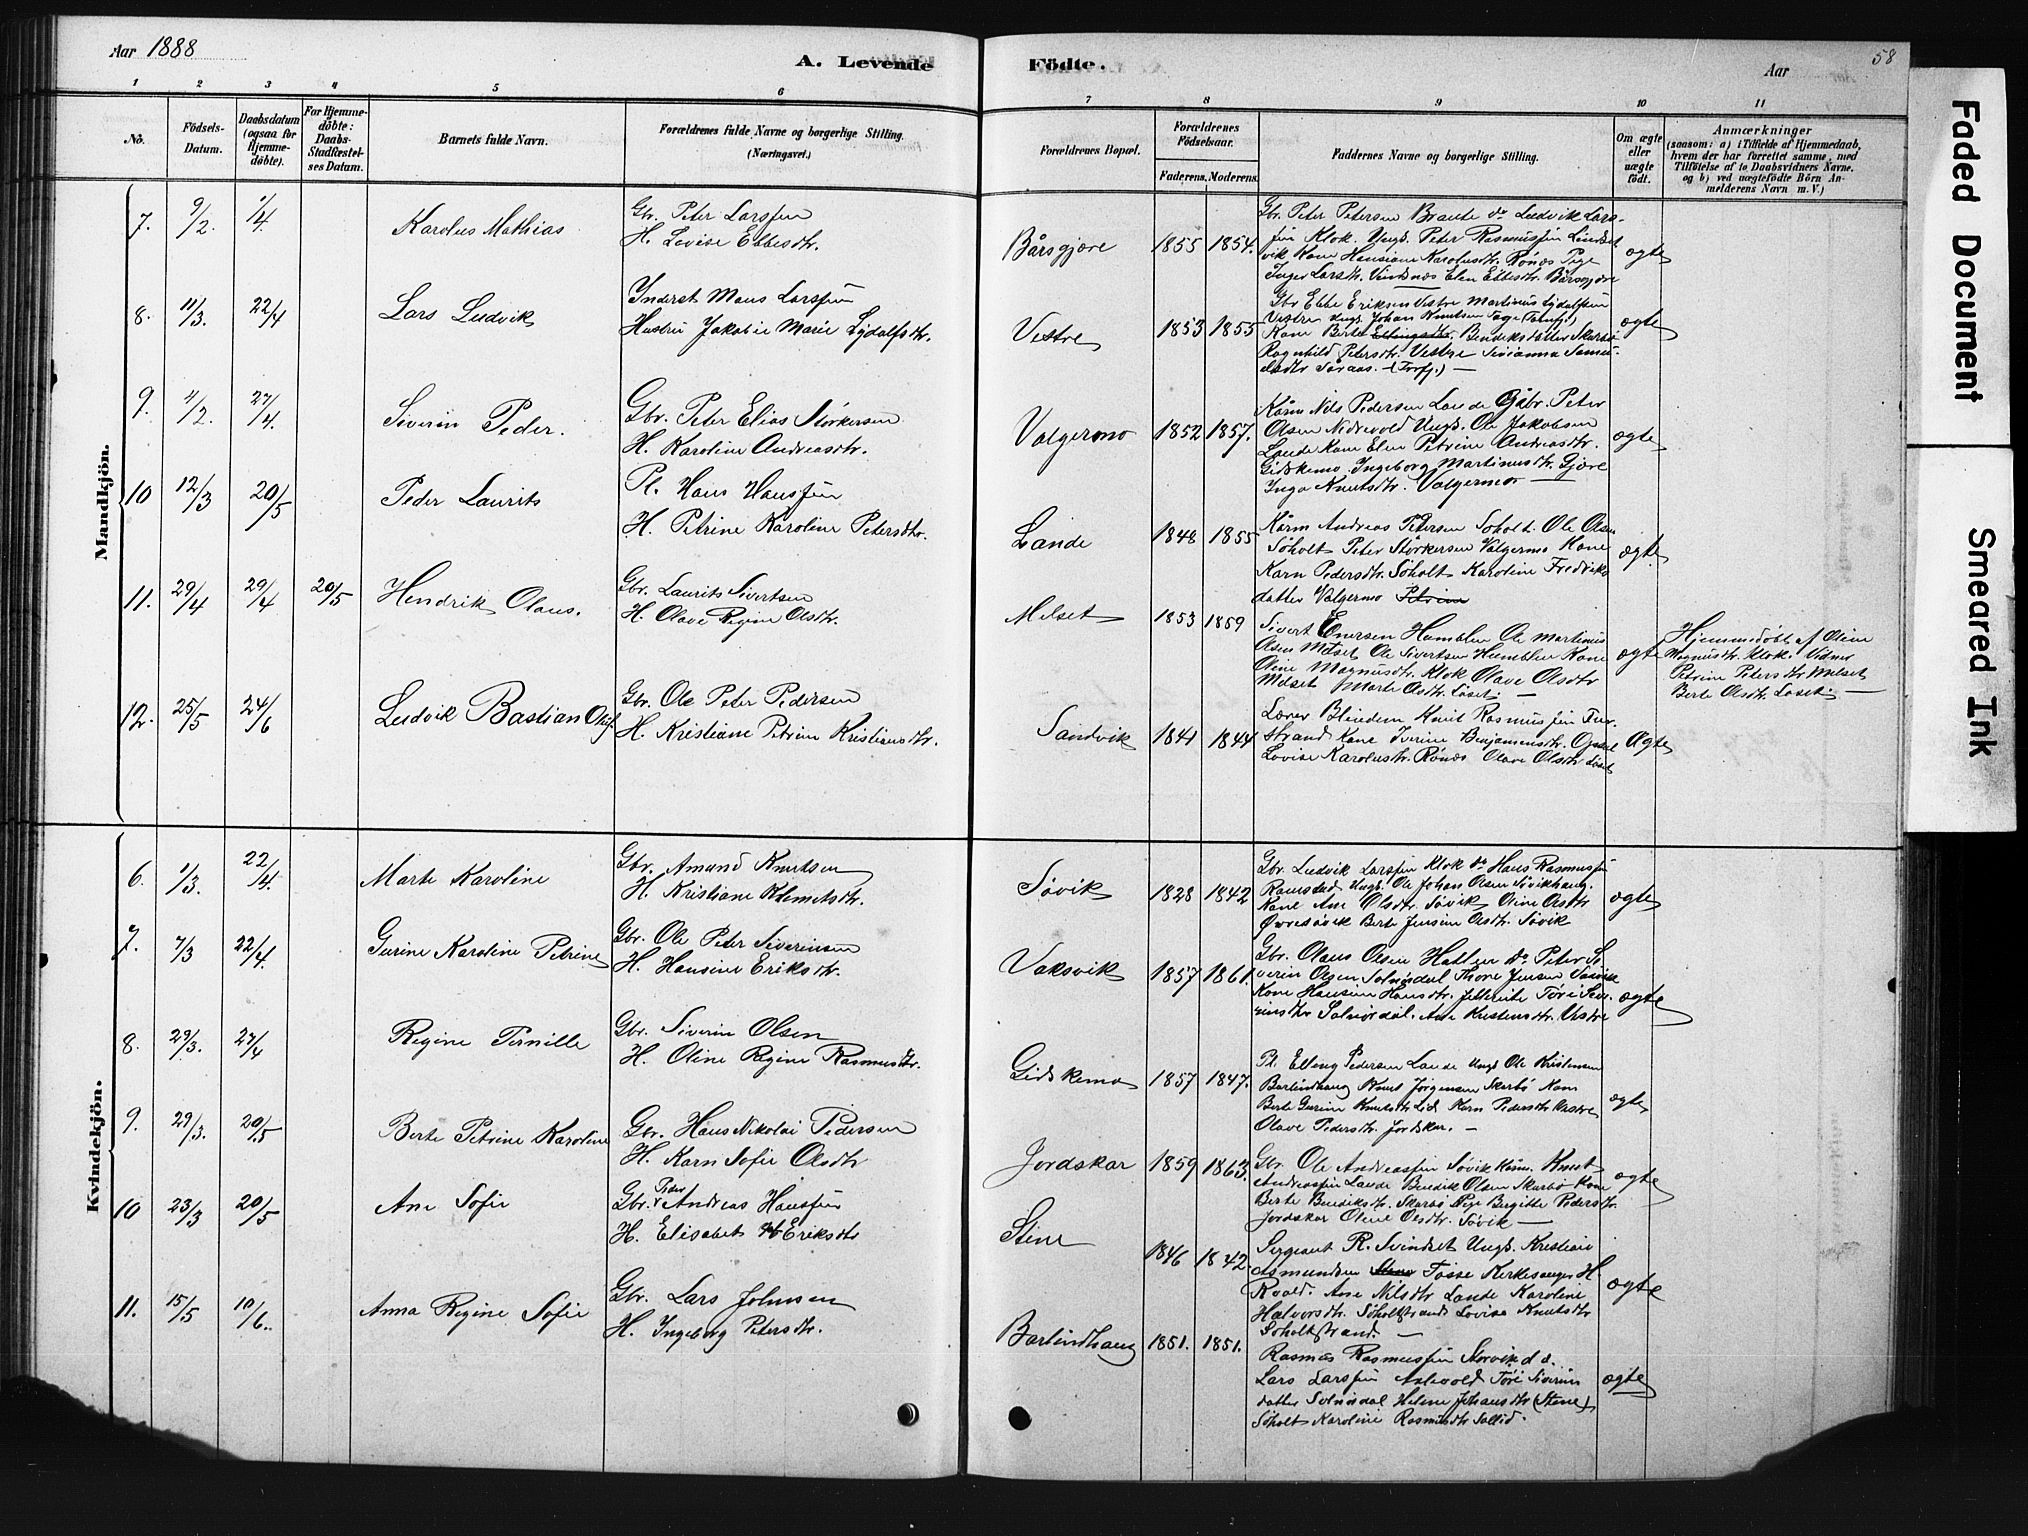 Aar 1888
A. Levende Födte.
Aar
58
Faded Document
Smeared Ink
1 2 3 4 5 6 7 8 9 10 11
No.
Födsels-Datum.
Daabsdatum (ogsaa for Hjemme-döbte).
For Hjemme-döbte: Daabs-Stadfæstel-ses Datum.
Barnets fulde Navn.
Forældrenes fulde Navne og borgerlige Stilling.
(Næringsvei.)
Forældrenes Bopæl.
Forældrenes Födselsaar.
Faderens. Moderens.
Faddernes Navne og borgerlige Stilling.
Om ægte eller uægte födt.
Anmærkninger
(saasom: a) i Tilfælde af Hjemmedaab,
hvem der har forrettet samme, med
Tilföielse af to Daabsvidners Navne,
og b) ved uægtefödte Börn An-
melderens Navn m. V.)
Mandkjön.
7. 9/2. 1/4. Karolus Mathias
Gbr. Peter Larssen
H. Lovise Ebbesdtr.
Bårsgjøre 1855 1854.
Gbr. Peter Petersen Braute do Ludvik Lars-
sen Klok. Ungk. Peter Rasmussen Lindset
vik Kone Hansiane Karolusdtr. Rønæs Pige
Inger Larsdtr. Vindsnæs Elen Ebbesdtr. Bårsgjøre
ægte
8. 11/3. 22/4 Lars Ludvik
Inderst Mons Larssen
Hustru Jakobie Marie Lydalfsdtr.
Vestre 1853 1855
Gbr Ebbe Eriksen Vestre Martinus Lydalfsen
Vestre Ungk. Johan Knutsen
Kone Berte Bendeksdatter Skarbø
Ragnhild Petersdtr. Vestre Sivianna Samu-
elsdtr Søraas.
ægte
9. 4/2. 27/4. Siverin Peder.
Gbr. Peter Elias Størkersen
H. Karoline Andreasdtr.
Valgermo 1852 1857.
Kårm. Nils Pedersen Lande Gåbr. Peter
Olsen Nedrevold Ungk. Ole Jakobsen
Lande Kone Elen Petrine Andreasdtr.
Gidskemo Ingeborg Martinusdtr. Gjøre
Inga Knutsdtr. Valgermo
ægte
10 12/3 20/5 Peder Laurits
Pl. Hans Hanssen
H. Petrine Karoline Petersdtr.
Lande 1848 1855
Kårm Andreas Petersen Søholt. Ole Olsen
Søholt Peter Størkersen Valgermo Kone
Karn Pedersdtr. Søholt Karoline Fredriks
datter Valgermo Petrine
ægte.
11. 29/4 29/4 20/5 Hendrik Olaus.
Gbr. Laurits Sivertsen
H. Olave Regine Olsdtr.
Melset 1853 1859
Sivert Enersen Humblen Ole Martinus
Olsen Melset Ole Sivertsen Humblen Kone
Oline Magnusdtr. Klok Olave Olsdtr
Melset Marte Olsdtr. Løset.
ægte
Hjemmedøbt af Oline
Magnusdtr. Klok. Vidner
Petrine Petersdtr Melset
Berte Olsdtr. Løset.
12. 25/5 24/6 Ludvik Bastian
Gbr. Ole Peter Pedersen
H. Kristiane Petrine Kristiansdtr.
Sandvik 1841 1844
Lærer Blindem Knut Rasmussen Fur-
strand Kone Iverine Benjaminsdtr. Opsal
Lovise Karolusdtr. Rønæs Olave Olsdtr Løset
Ægte
Kvindekjön.
6. 1/3. 22/4. Marte Karoline
Gbr. Amund Knutsen
H. Kristiane Klemetsdtr.
Søvik 1828 1842
Gbr. Ludvik Larssen Klok do Hans Rasmussen
Ramstad Ungk. Ole Johan Olsen Søvikhaug.
Kone Ane Olsdtr. Søvik Oline Olsdtr
Øvresøvik Berte Jensine Olsdtr. Søvik
ægte
7. 7/3 22/4. Gurine Karoline Petrine
Gbr. Ole Peter Siverinsen
H. Hansine Eriksdtr.
Vaksvik 1857 1861.
Gbr. Olaus Olsen Hatlen do Peter Si
verin Olsen Solnørdal Thore Jensen Vaksvik
Kone Hansine Hansdtr. Tøri Seve-
rinsdtr Solnørdal. Ane Kristensdtr. Vestre
ægte
8. 29/3. 27/4 Regine Pernille
Gbr. Siverin Olsen
H. Oline Regine Rasmusdtr.
Gidskemo 1857 1847.
Pl. Elling Pedersen Lande Ungk Ole Kristensen
Barlindhaug Knut Jørgensen Skarbø Kone
Berte Gurine Knutsdtr Lid Karn Pedersdtr Vestre
Olave Pedersdtr. Jordskar.
ægte
9. 29/3. 20/5 Berte Petrine Karoline
Gbr. Hans Nikolai Pedersen
H. Karn Sofie Olsdtr
Jordskar 1859 1863.
Gbr. Ole Andreassen Søvik Kårm. Knut
Andreassen Lande Bendik Olsen Skarbø Kone
Berte Bendiksdtr. Skarbø Pige Bergitte Pedersdtr.
Jordskar Oline Olsdtr. Søvik
ægte
10 23/3 20/5 Ane Sofie
Gbr. Peder Andreas Hanssen
H. Elisabet Eriksdtr
Stene 1846 1842.
Sergeant R. Svindset Ungk. Kristian
Asmundsen Fosse Kirkesanger H.
Roald. Ane Nilsdtr Lande Karoline
Halvorsdtr. Søholtstrand Lovise Knutsdtr
Søholtstrand.
ægte
11. 15/5 10/6. Anna Regine Sofie
Gbr. Lars Johnsen
H. Ingeborg Petersdtr.
Barlindhaug 1851. 1851.
Rasmus Rasmussen Storvik
Lars Larssen Tøri Siverins
datter Solnørdal Helene Johansdtr (Stene)
Søholt Karoline Rasmusdtr
ægte